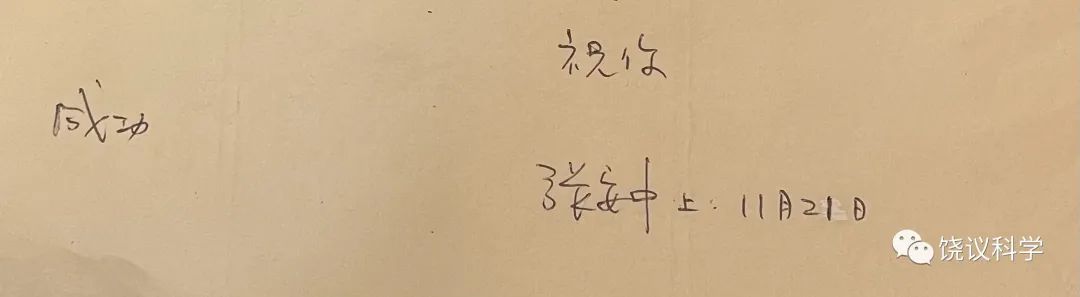 祝你
成功
张安中上. 11月21日
饶议科学